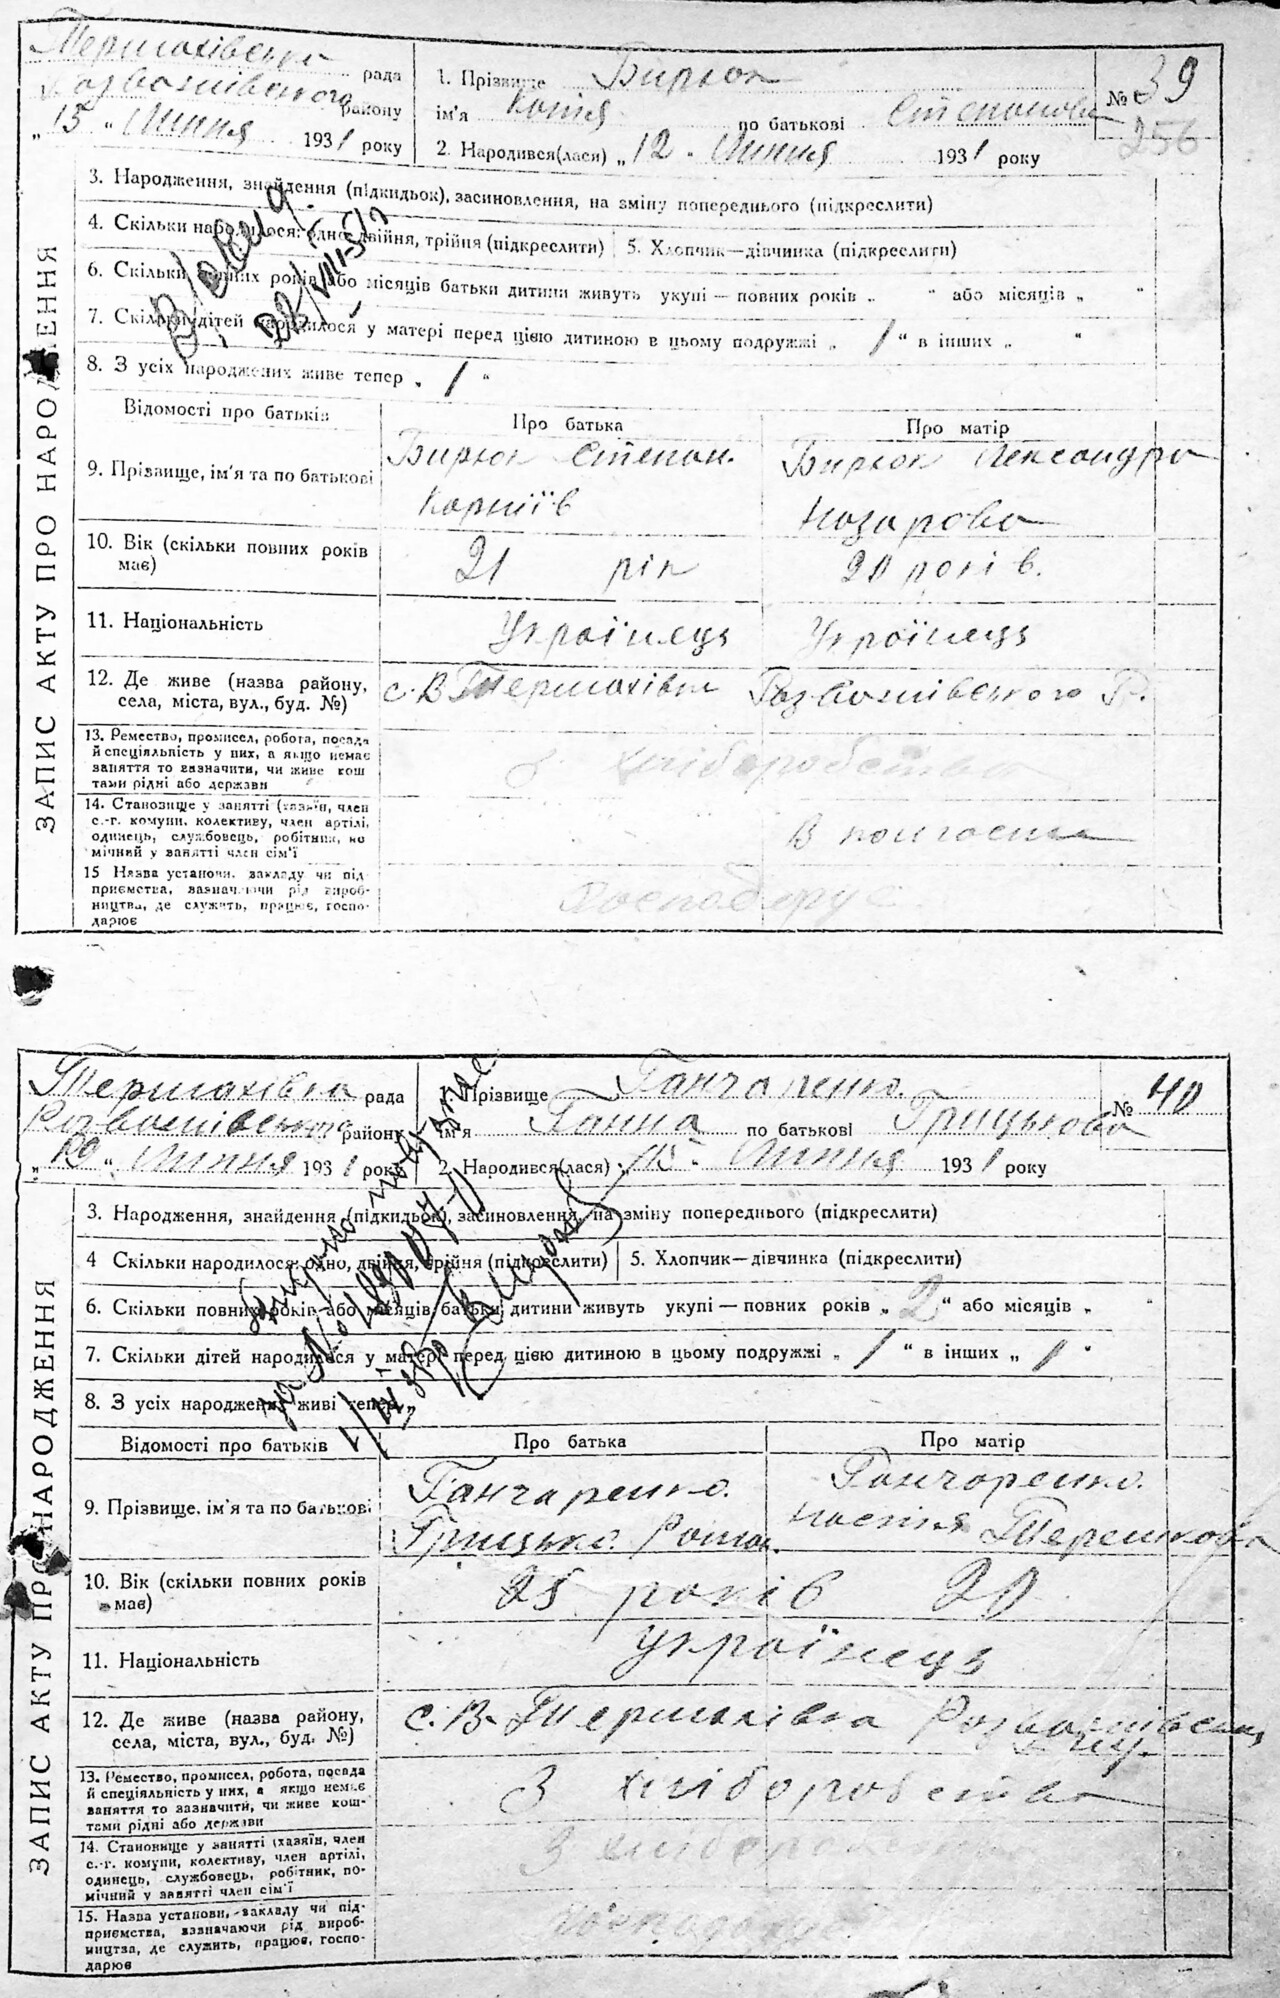 Термахівська рада
Розважівського району
„ 15 " Липня 1931 року
1. Прізвище Бирюк
ім'я Катя по батькові Степанова
2. Народився(лася) „ 12 " Липня 1931 року
№ 39
256
ЗАПИС АКТУ ПРО НАРОДЖЕННЯ
3. Народження, знайдення (підкидьок), засиновлення, на зміну попереднього (підкреслити)
4. Скільки народилося: одно, двійня, трійня (підкреслити) 5. Хлопчик—дівчинка (підкреслити)
6. Скільки повних років або місяців батьки дитини живуть укупі — повних років „ " або місяців „ "
7. Скільки дітей народилося у матері перед цією дитиною в цьому подружжі „ 1 " в інших „ "
8. З усіх народжених живе тепер „ 1 "
Відомості про батьків Про батька Про матір
9. Прізвище, ім'я та по батькові Бирюк Степан. Бирюк Лександра
Карпіїв Назарова
10. Вік (скільки повних років має) 21 рік 20 років.
11. Національність Українець Українець
12. Де живе (назва району, села, міста, вул., буд. №) с. В Термахівка Розважівського Р.
13. Ремество, промисел, робота, посада
й спеціяльність у них, а якщо немає
заняття то зазначити, чи живе кош
тами рідні або держави
хліборобства
14. Становище у занятті (хазяїн, член
с.-г. комуни, колективу, член артілі,
одинець, службовець, робітник, по
мічний у занятті член сім'ї
В колгоспи
15 Назва установи, закладу чи під
приємства, зазначаючи рід вироб-
ництва, де служить, працює, госпо-
дарює
Господарує
Термахівка рада
Розважівського району
„ " Липня 1931 року
1. Прізвище Ганчаренко.
ім'я Ганна по батькові Грицькова
2. Народився(лася) „ 15 " Липня 1931 року
№ 40
ЗАПИС АКТУ ПРО НАРОДЖЕННЯ
3. Народження, знайдення (підкидьок), засиновлення, на зміну попереднього (підкреслити)
4 Скільки народилося: одно, двійня, трійня (підкреслити) 5. Хлопчик—дівчинка (підкреслити)
6. Скільки повних років або місяців батьки дитини живуть укупі — повних років „ 2 " або місяців „ "
7. Скільки дітей народилося у матері перед цією дитиною в цьому подружжі „ 1 " в інших „ 1 "
8. З усіх народжених живі тепер „
Відомості про батьків Про батька Про матір
9. Прізвище, ім'я та по батькові Ганчаренко. Ганчоренко.
Грицько Настя Терешкова
10. Вік (скільки повних років має) 25 років 20
11. Національність Українець
12. Де живе (назва району, села, міста, вул., буд. №) с. В. Термахівка
13. Ремество, промисел, робота, посада
й спеціяльність у них, а якщо немає
заняття то зазначити, чи живе кош-
тами рідні або держави
З хліборобства
14. Становище у занятті (хазяїн, член
с.-г. комуни, колективу, член артілі,
одинець, службовець, робітник, по-
мічний у занятті член сім'ї
З хліборобства
15. Назва установи, закладу чи під-
приємства, зазначаючи рід вироб-
ництва, де служить, працює, госпо-
дарює
Господарує